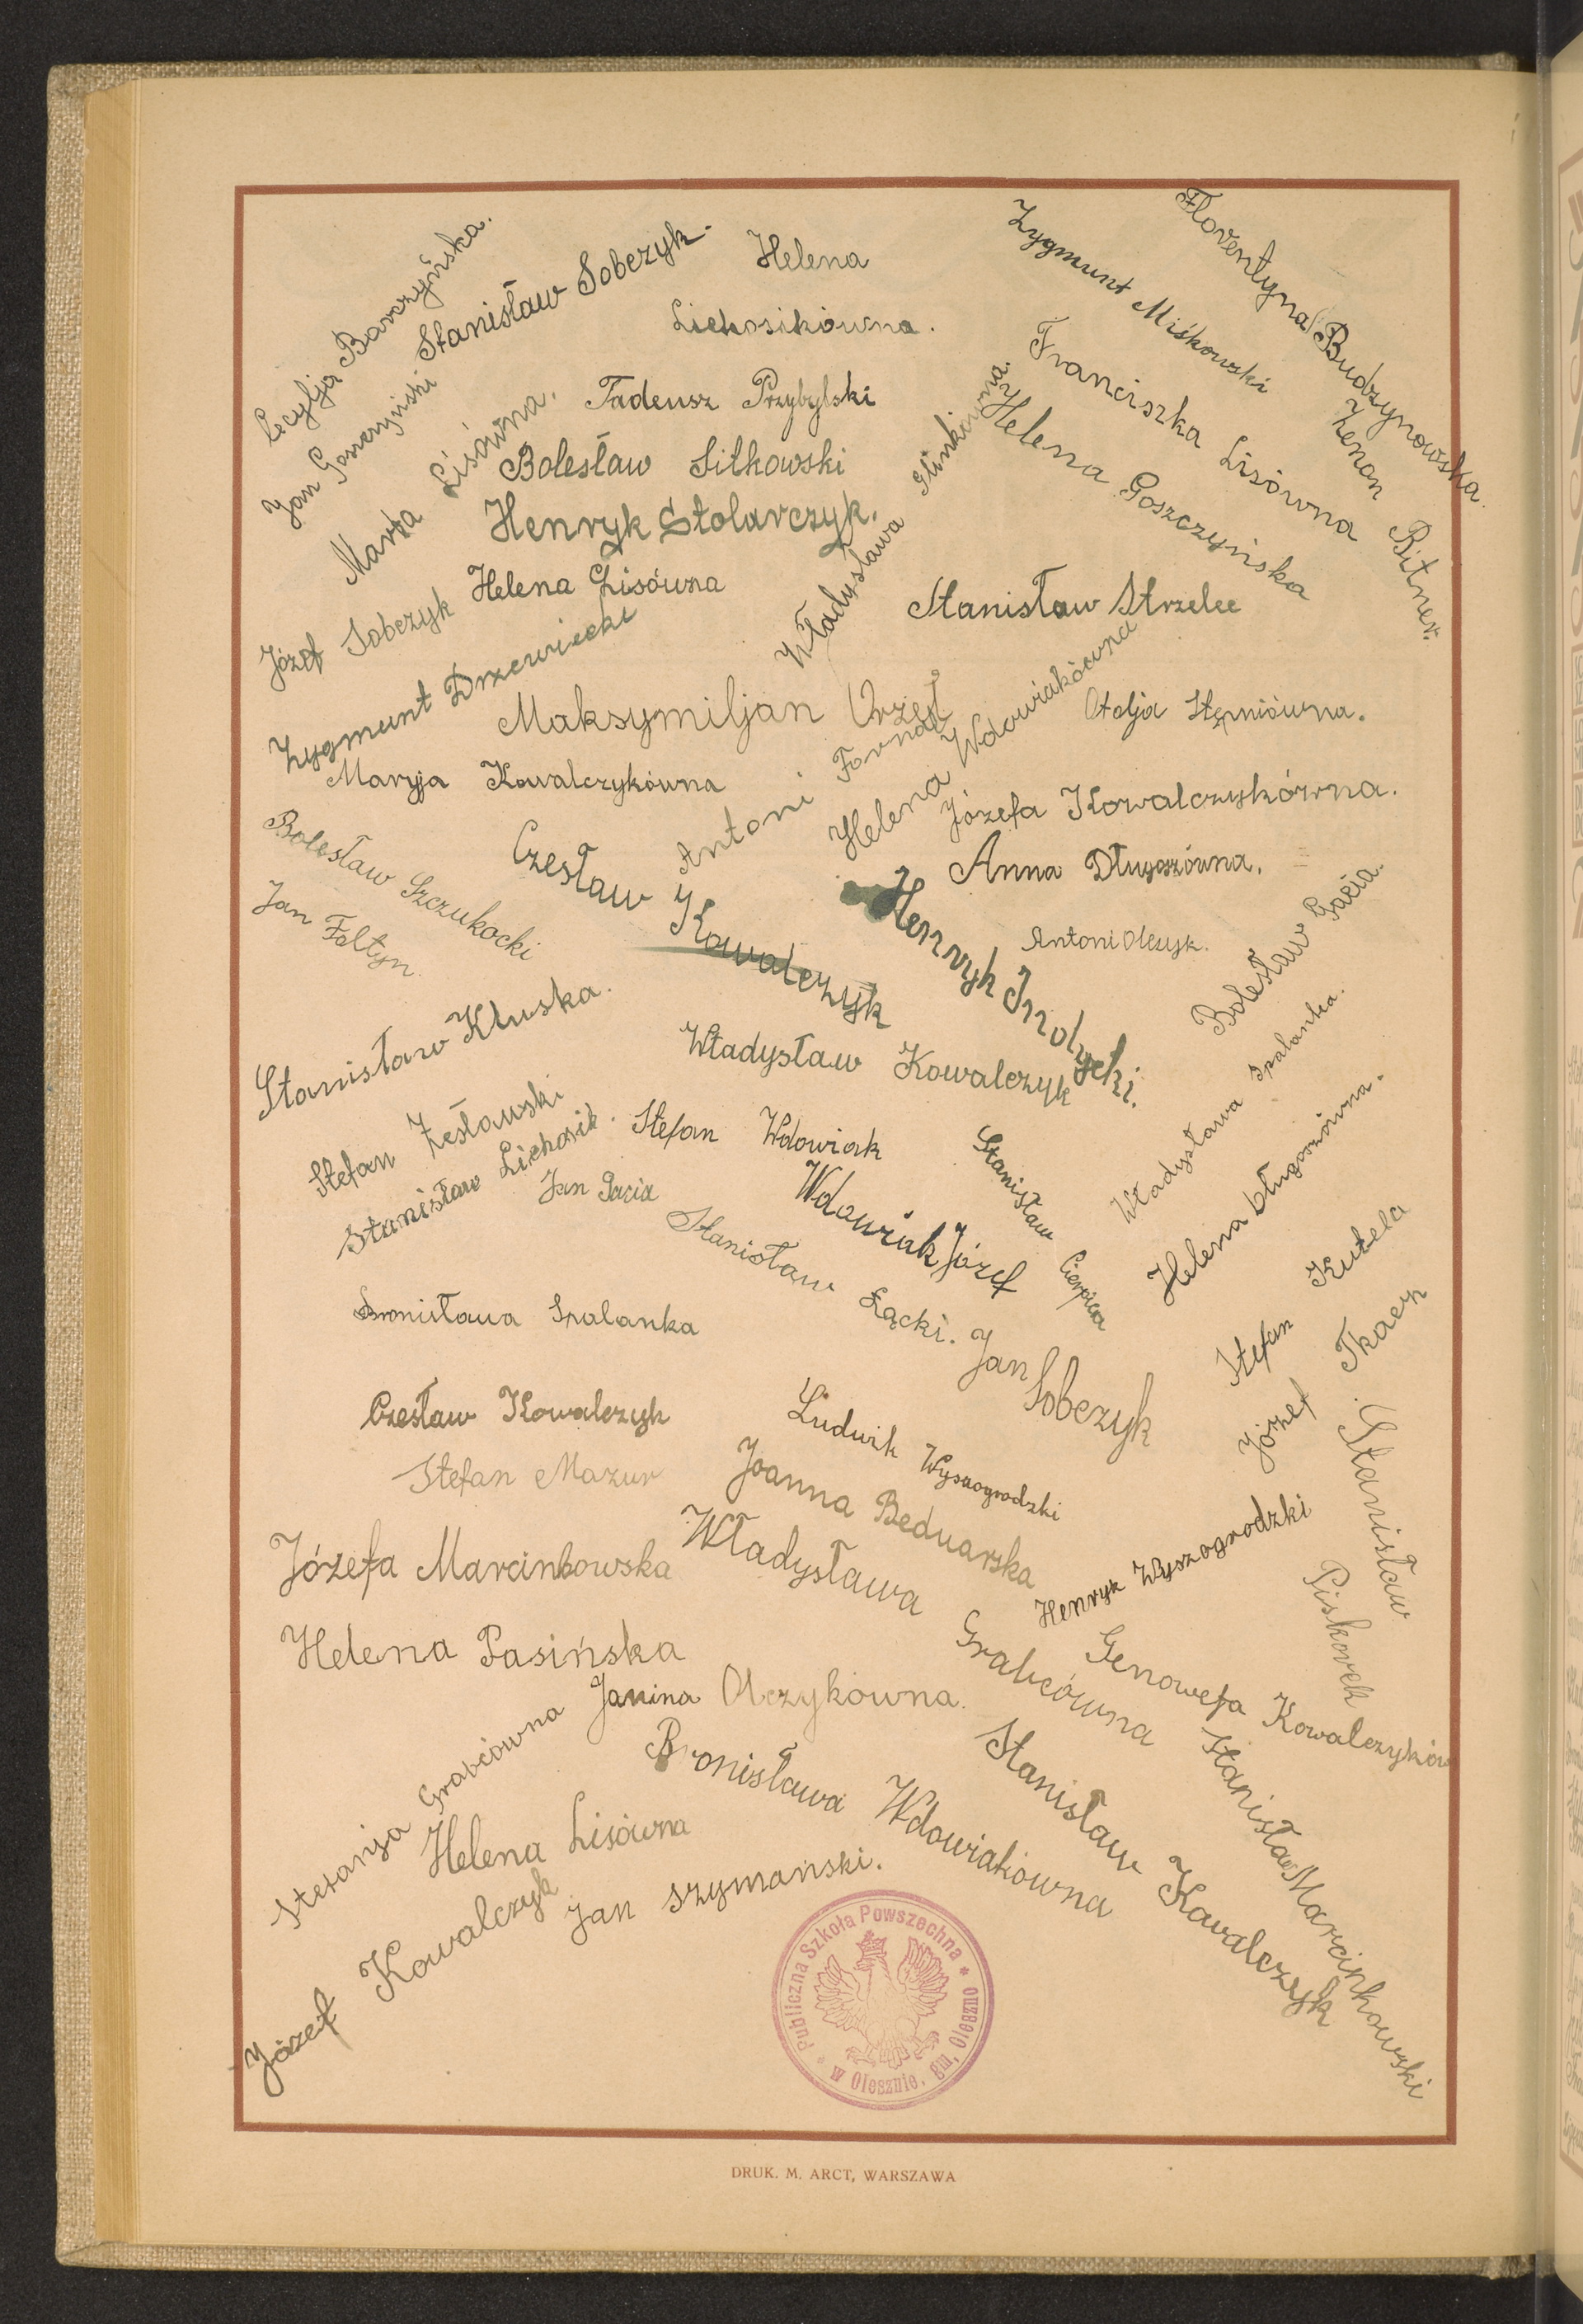 Cecylja Barczyńska.
Jan Gawczyński
Stanisław Sobczyk.
Helena
Lichosikówna.
Zygmunt Miśkowski
Florentyna Budzynowska.
Marta Lisówna.
Tadeusz Przybylski
Franciszka Lisówna
Zenon Bitner.
Bolesław Sitkowski
Władysława Glinkówna
Helena Goszczyńska
Henryk Stolarczyk.
Józef Sobczyk
Helena Lisówna
Stanisław Strzelec
Zygmunt Drzewiecki
Maksymiljan Orzeł
Otolja Stępniówna.
Maryja Kowalczykówna
Antoni Fornal
Helena Wdowiakówna
Józefa Kowalczykówna.
Bolesław Szczukocki
Czesław Kowalczyk
Anna Długoszówna.
Jan Faltyn.
Henryk Smolycki.
Antoni Olczyk.
Bolesław Gacia.
Stanisław Kluska.
Władysław Kowalczyk
Władysława Spalanka.
Stefan Zesławski
Stanisław Lichosik.
Stefan Wdowiak
Stanisław Cierpica
Helena Długoszówna.
Jan Gacia
Wdowiak Józef
Stanisław Łącki.
Stefan Kutela
Bronisława Spalanka
Jan Sobczyk
Józef Tkacz
Czesław Kowalczyk
Ludwik Wyszogrodzki
Stefan Mazur
Joanna Bednarska
Stanisław
Piskorek
Józefa Marcinkowska
Władysława Grabcówna
Henryk Wyszogrodzki
Helena Pasińska
Genowefa Kowalczyków
Janina Olczykówna.
Stefanja Grabcówna
Bronisława Wdowiakówna
Stanisław Kowalczyk
Stanisław Marcinkowski
Helena Lisówna
Józef Kowalczyk
Jan Szymański.
* Publiczna Szkoła Powszechna *
w Olesznie, gm. Oleszno
DRUK. M. ARCT, WARSZAWA